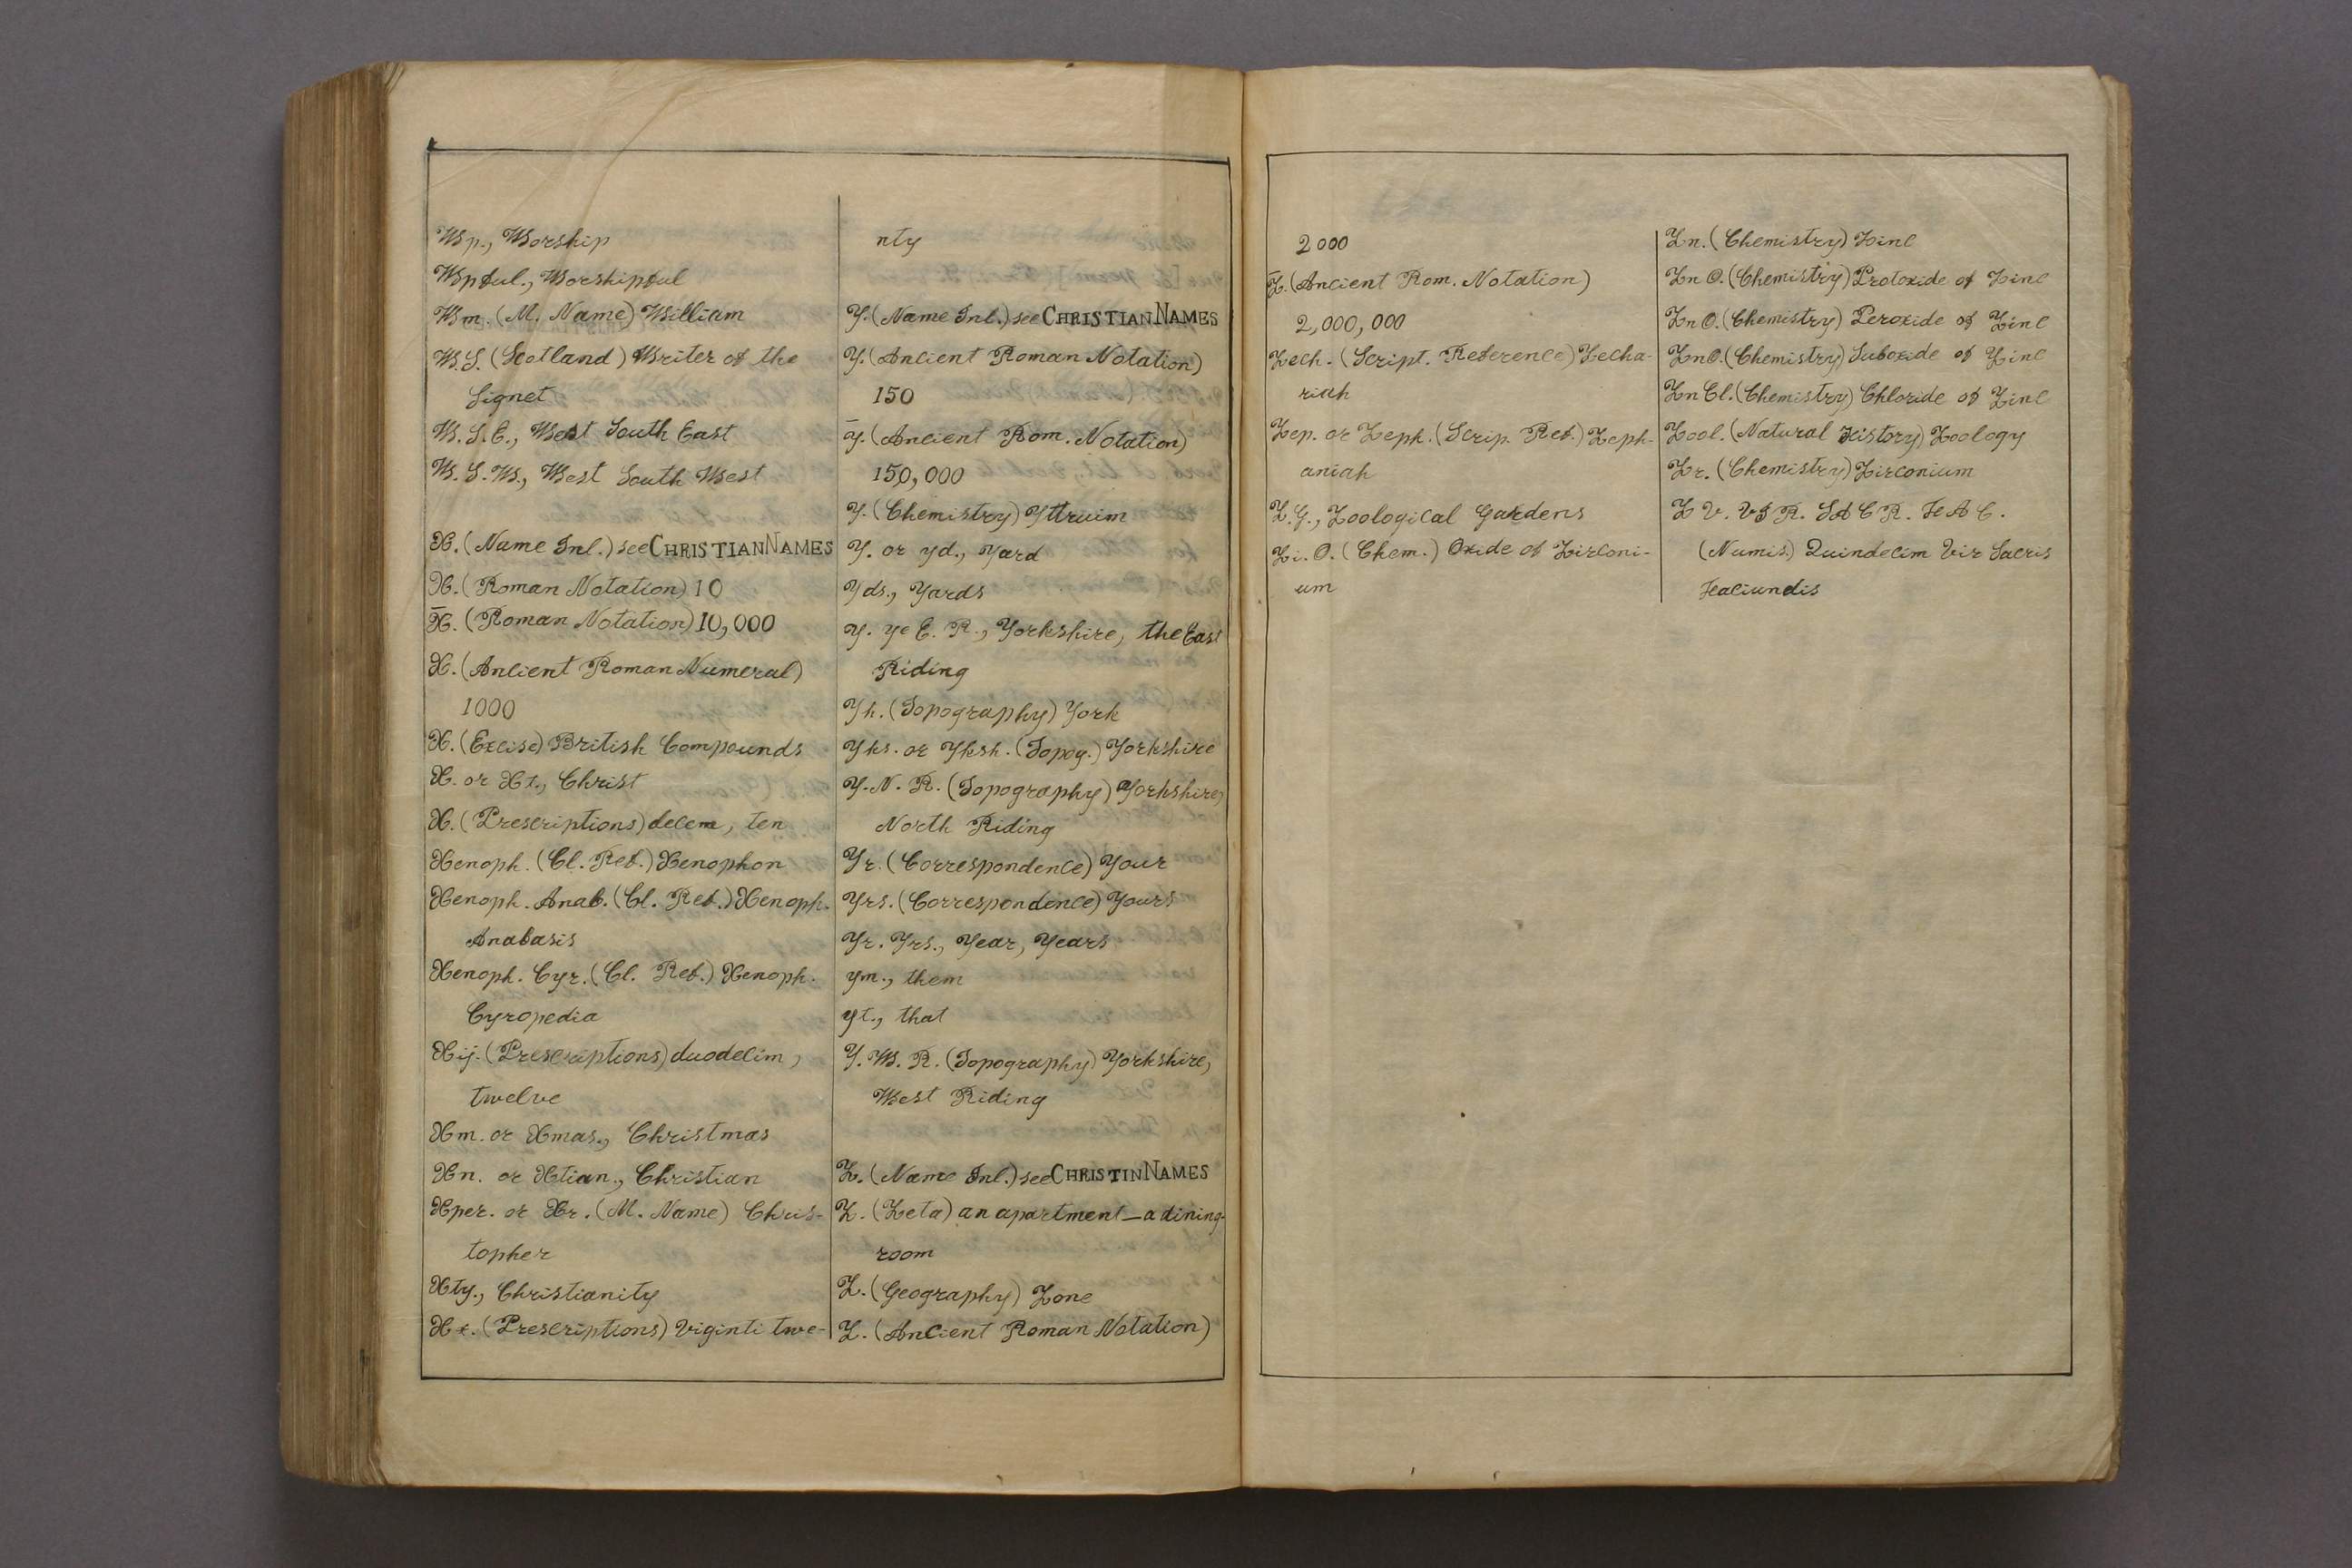 Wp., Worship
Wpful., Worshipful
Wm. (M. Name) William
W.S. (Scotland) Writer of the
Signet
W.S.E., West South East
W.S.W., West South West
X. (Name Inl.) see CHRISTIAN NAMES
X. (Roman Notation) 10
X̄. (Roman Notation) 10,000
X. (Ancient Roman Numeral)
1000
X. (Excise) British Compounds
X. or Xt., Christ
X. (Prescriptions) decem, ten
Xenoph. (Cl. Ref.) Xenophon
Xenoph. Anab. (Cl. Ref.) Xenoph.
Anabasis
Xenoph. Cyr. (Cl. Ref.) Xenoph.
Cyropedia
Xij. (Prescriptions) duodecim,
twelve
Xm. or Xmas., Christmas
Xn. or Xtian., Christian
Xper. or Xr. (M. Name) Chris-
topher
Xty., Christianity
Xx. (Prescriptions) Viginti twe-
nty
Y. (Name Inl.) see CHRISTIAN NAMES
Y. (Ancient Roman Notation)
150
ȳ. (Ancient Rom. Notation)
150,000
Y. (Chemistry) Yttruim
Y. or yd., Yard
Yds., Yards
Y. ye E. R., Yorkshire, the East
Riding
Yk. (Topography) York
Yks. or Yksh. (Topog.) Yorkshire
Y.N.R. (Topography) Yorkshire,
North Riding
Yr. (Correspondence) Your
Yrs. (Correspondence) Yours
Yr. Yrs., Year, Years
ym., them
yt., that
Y.W.R. (Topography) Yorkshire,
West Riding
Z. (Name Inl.) see CHRISTIN NAMES
Z. (Zeta) an apartment—a dining-
room
Z. (Geography) Zone
Z. (Ancient Roman Notation)
2000
Z̄. (Ancient Rom. Notation)
2,000,000
Zech. (Script. Reference) Zecha-
riah
Zep. or Zeph. (Scrip. Ref.) Zeph-
aniah
Z.G., Zoological Gardens
Zi.O. (Chem.) Oxide of Zirconi-
um
Zn. (Chemistry) Zinc
Zn O. (Chemistry) Protoxide of Zinc
Zn O. (Chemistry) Peroxide of Zinc
ZnO. (Chemistry) Suboxide of Zinc
Zn Cl. (Chemistry) Chloride of Zinc
Zool. (Natural History) Zoology
Zr. (Chemistry) Zirconium
Z V. VIR. SACR. FAC.
(Numis.) Quindecim Vir Sacris
Faciundis